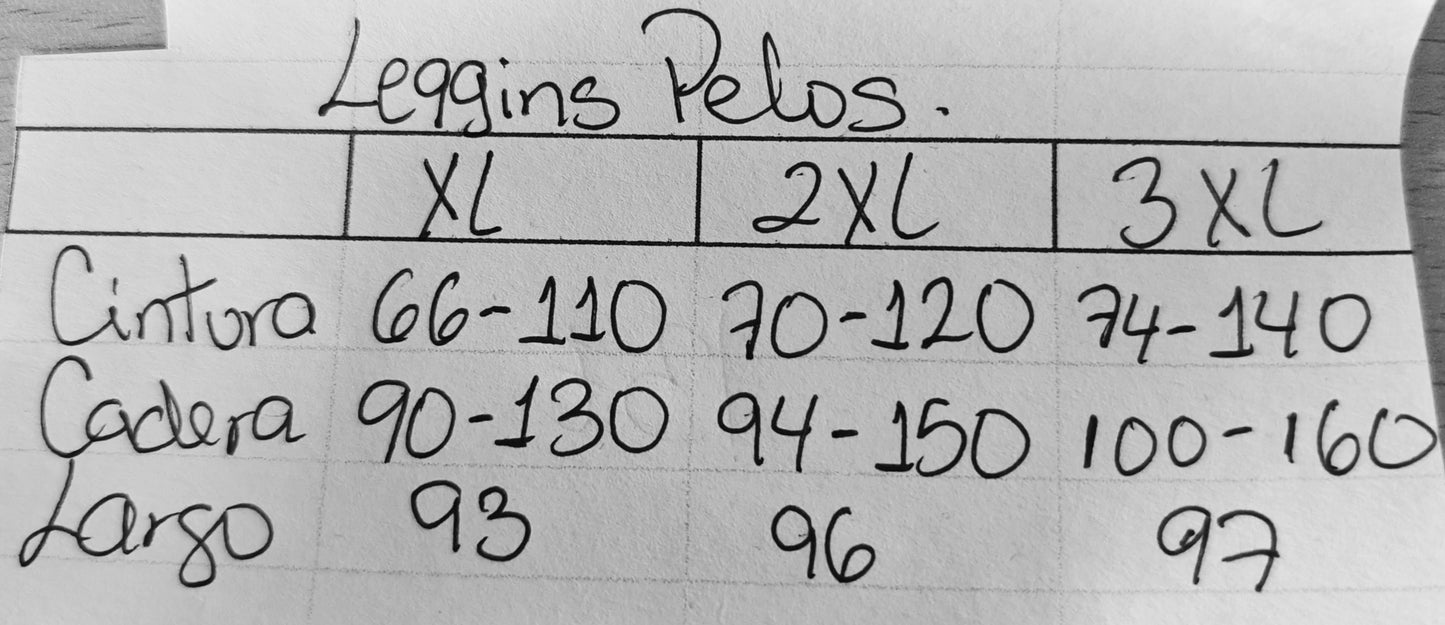 Leggins Pelos.
XL 2XL 3XL
Cintura 66-110 70-120 74-140
Cadera 90-130 94-150 100-160
Largo 93 96 97